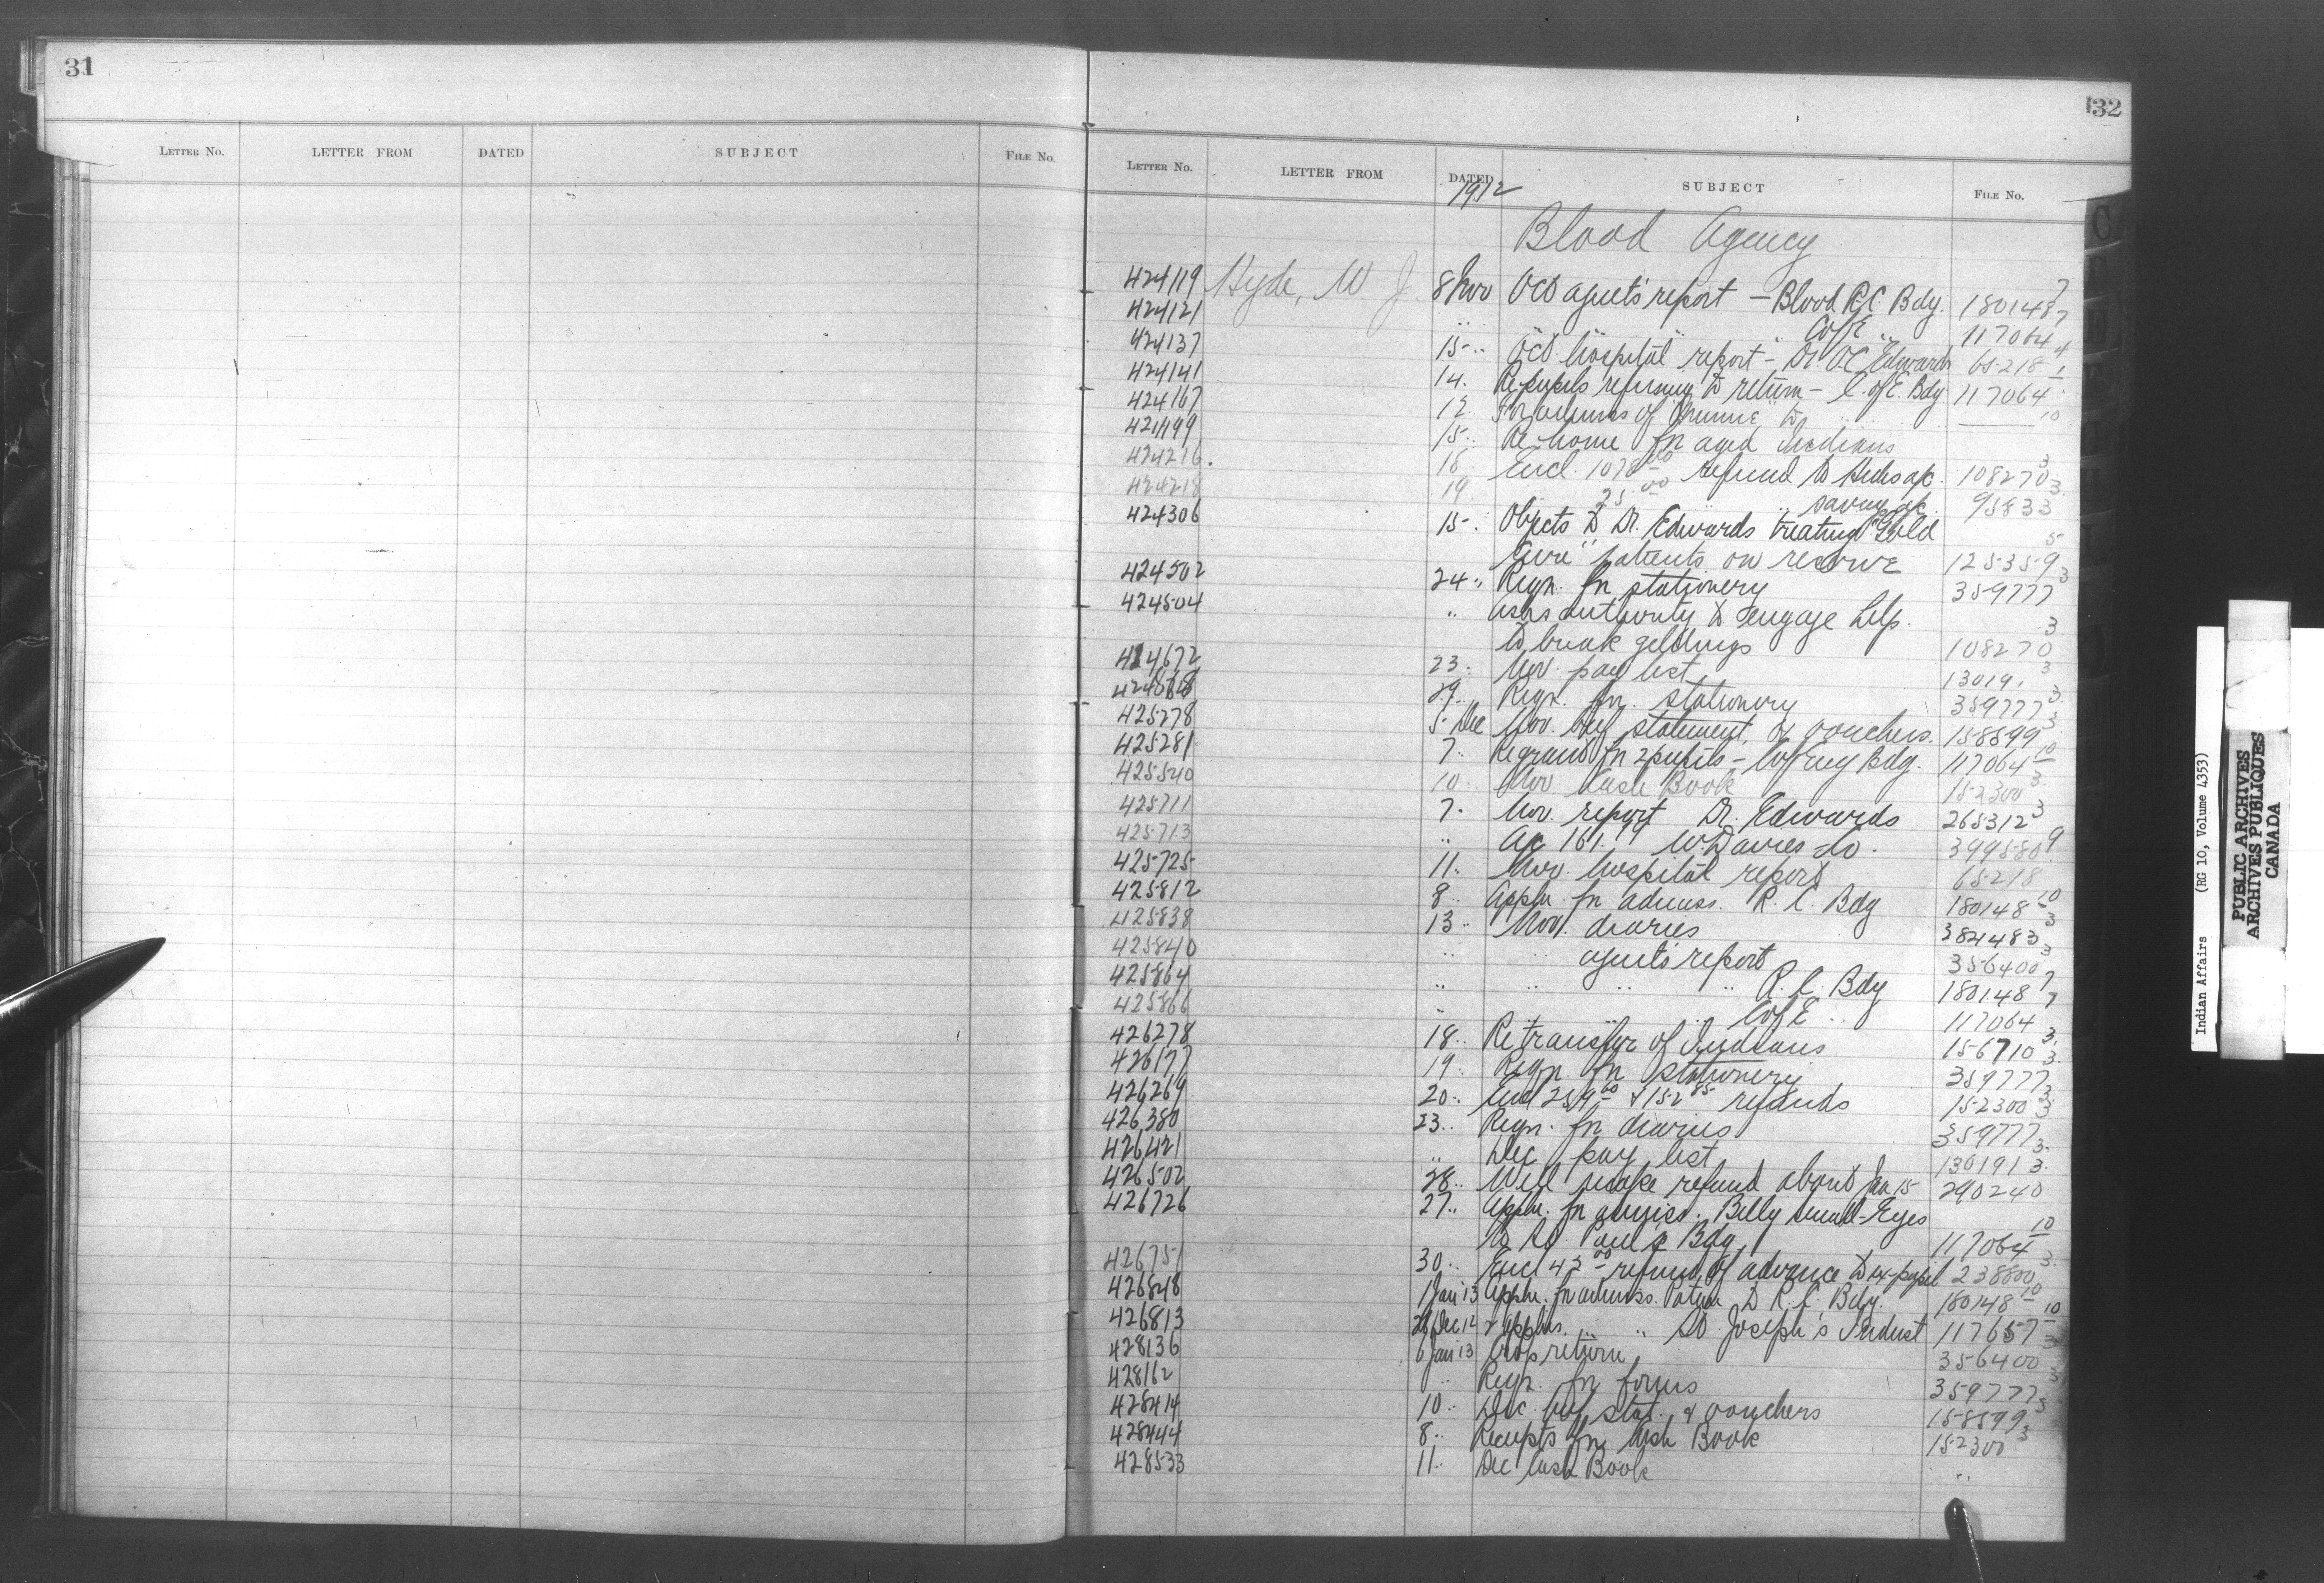 31
LETTER NO. LETTER FROM DATED SUBJECT FILE NO.
32
LETTER NO. LETTER FROM DATED SUBJECT FILE NO.
1912
Blood Agency
424119 Hyde, W J 8 Nov Oct agent's report - Blood R.C. Bdg. 180148 7
424121 " " " " C of E " 117064 7
424137 15 " Oct hospital report - Dr. O.C. Edwards 65218 4
424141 14 " Re pupils refusing to return - C. of E. Bdg. 117064 1
424167 12 " For admiss of to 10
424199 15 " Re home for aged Indians
424216 18 Encl. 1078 00 refund to Hides a/c. 108270 3
424218 19 " 25 00 " " saving a/c. 95833 3
424306 15 " Objects to Dr. Edwards treating "Gold
Cure" patients on reserve 125359 5
424502 24 " Reqn. for stationery 359777 3
424504 " asks authority to engage help.
to break geldings 108270 3
424672 23 " Nov. pay list 130191 3
29 " Reqn. for stationery 359777 3
425278 5 Dec Nov. beef statement & vouchers. 158599 3
425281 7 " Re grant for 2 pupils - C of Eng Bdg. 117064 10
425540 10 " Nov Cash Book 152300 3
425711 7 " Nov. report Dr. Edwards 265312 3
425713 " a/c 161. W. Davies Co. 399580 9
425725 11 " Nov. hospital report 65218
425812 8 " Appln. for admiss. R. C. Bdg 180148 10
425838 13 " Nov. diaries 384483 3
425840 " " agent's report 356400 3
425864 " " " " R. C. Bdg 180148 7
425866 " " " " C of E " 117064 7
426278 18 " Re transfer of Indians 156710 3
426177 19 " Reqn. for stationery 359777 3
426269 20 " Encl 259 00 & 152 85 refunds 152300 3
426380 23 " Reqn. for diaries 359777 3
426421 " Dec. pay list 130191 3
426502 28 " Will make refund about Jan 15 290240 3
426726 27 " Appln. for admiss. Billy Small-Eyes
to St. Paul's Bdg 117064 10
426751 30 " Encl 43 00 refund of advance to ex-pupil 238800 3
426848 1 Jan 13 Appln. for admiss. to R. C. Bdg. 180148 10
426813 28 Dec 12 2 Applns. " " St. Joseph's Indust 117657 10
428136 6 Jan 13 Crop return 356400 3
428162 " Reqn. for forms 359777 3
428414 10 " Dec. beef stat. & vouchers 158599 3
428444 8 " Receipts for Cash Book 152300 3
428533 11 " Dec Cash Book "
Indian Affairs (RG 10, Volume 4353)
PUBLIC ARCHIVES
ARCHIVES PUBLIQUES
CANADA